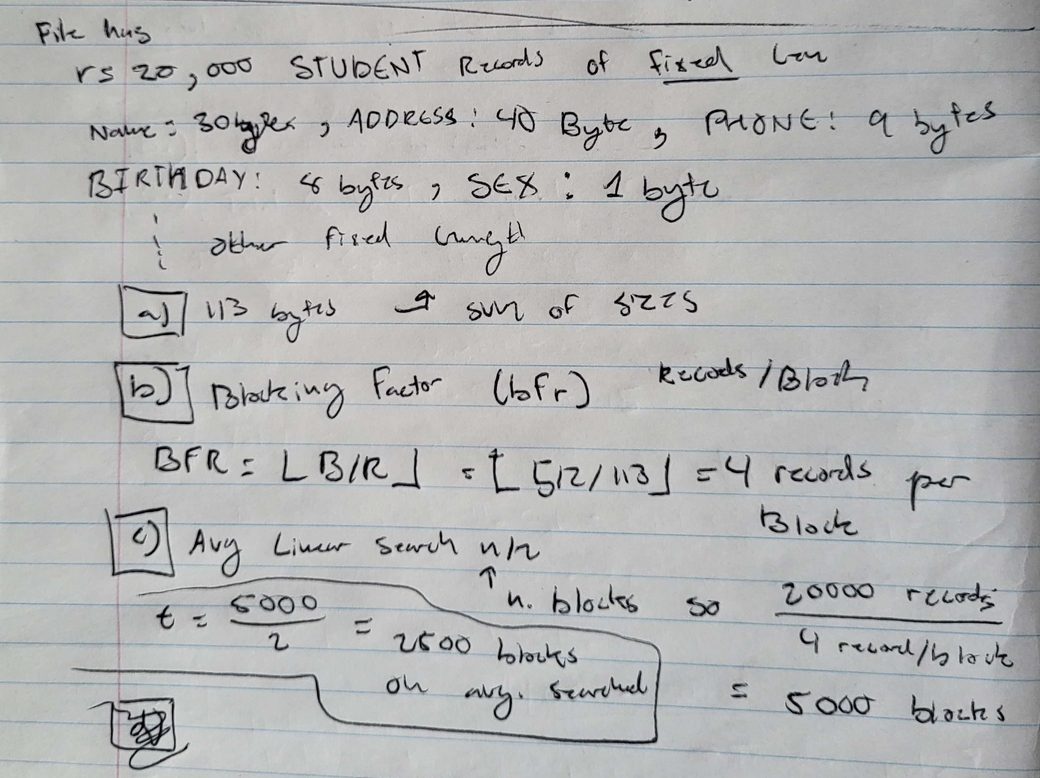 File has
rs 20,000 STUDENT Records of fixed len
Name: 30 bytes, ADDRESS: 40 Byte, PHONE: 9 bytes
BIRTHDAY: 8 bytes, SEX: 1 byte
other fixed length
a) 113 bytes → sum of sizes
b) Blocking Factor (bfr) Records/Block
BFR = ⌊B/R⌋ = ⌊512/113⌋ = 4 records per
Block
c) Avg Linear Search n/2
↑
n. blocks so 20000 records / 4 record/block
t = 5000/2 = 2500 blocks
on avg. searched
= 5000 blocks